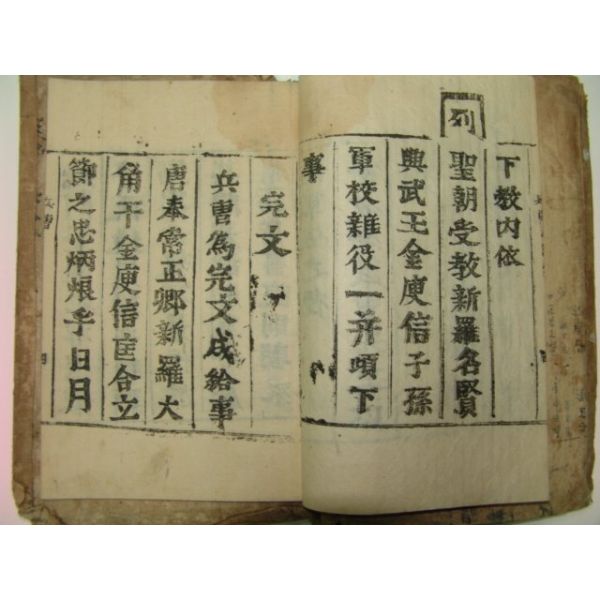 列
下教內依
聖朝受教新羅名賢
興武王金庾信子孫
軍校雜役一并頉下
事
完文
兵曹爲完文成給事
唐奉常正卿新羅大
角干金庾信匡合立
節之忠炳烺乎日月